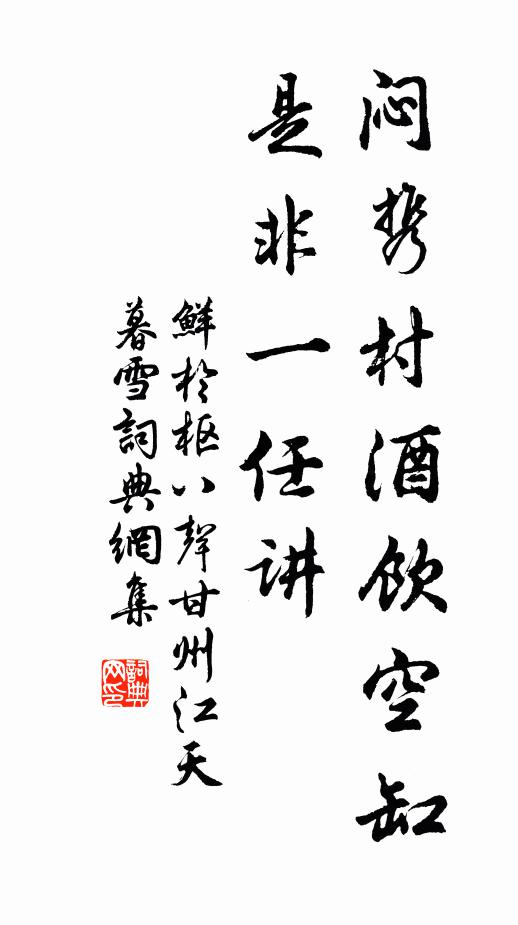 闷携村酒饮空缸
是非一任讲
鲜於枢八聲甘州江天
暮雪詞典網集
詞典网印